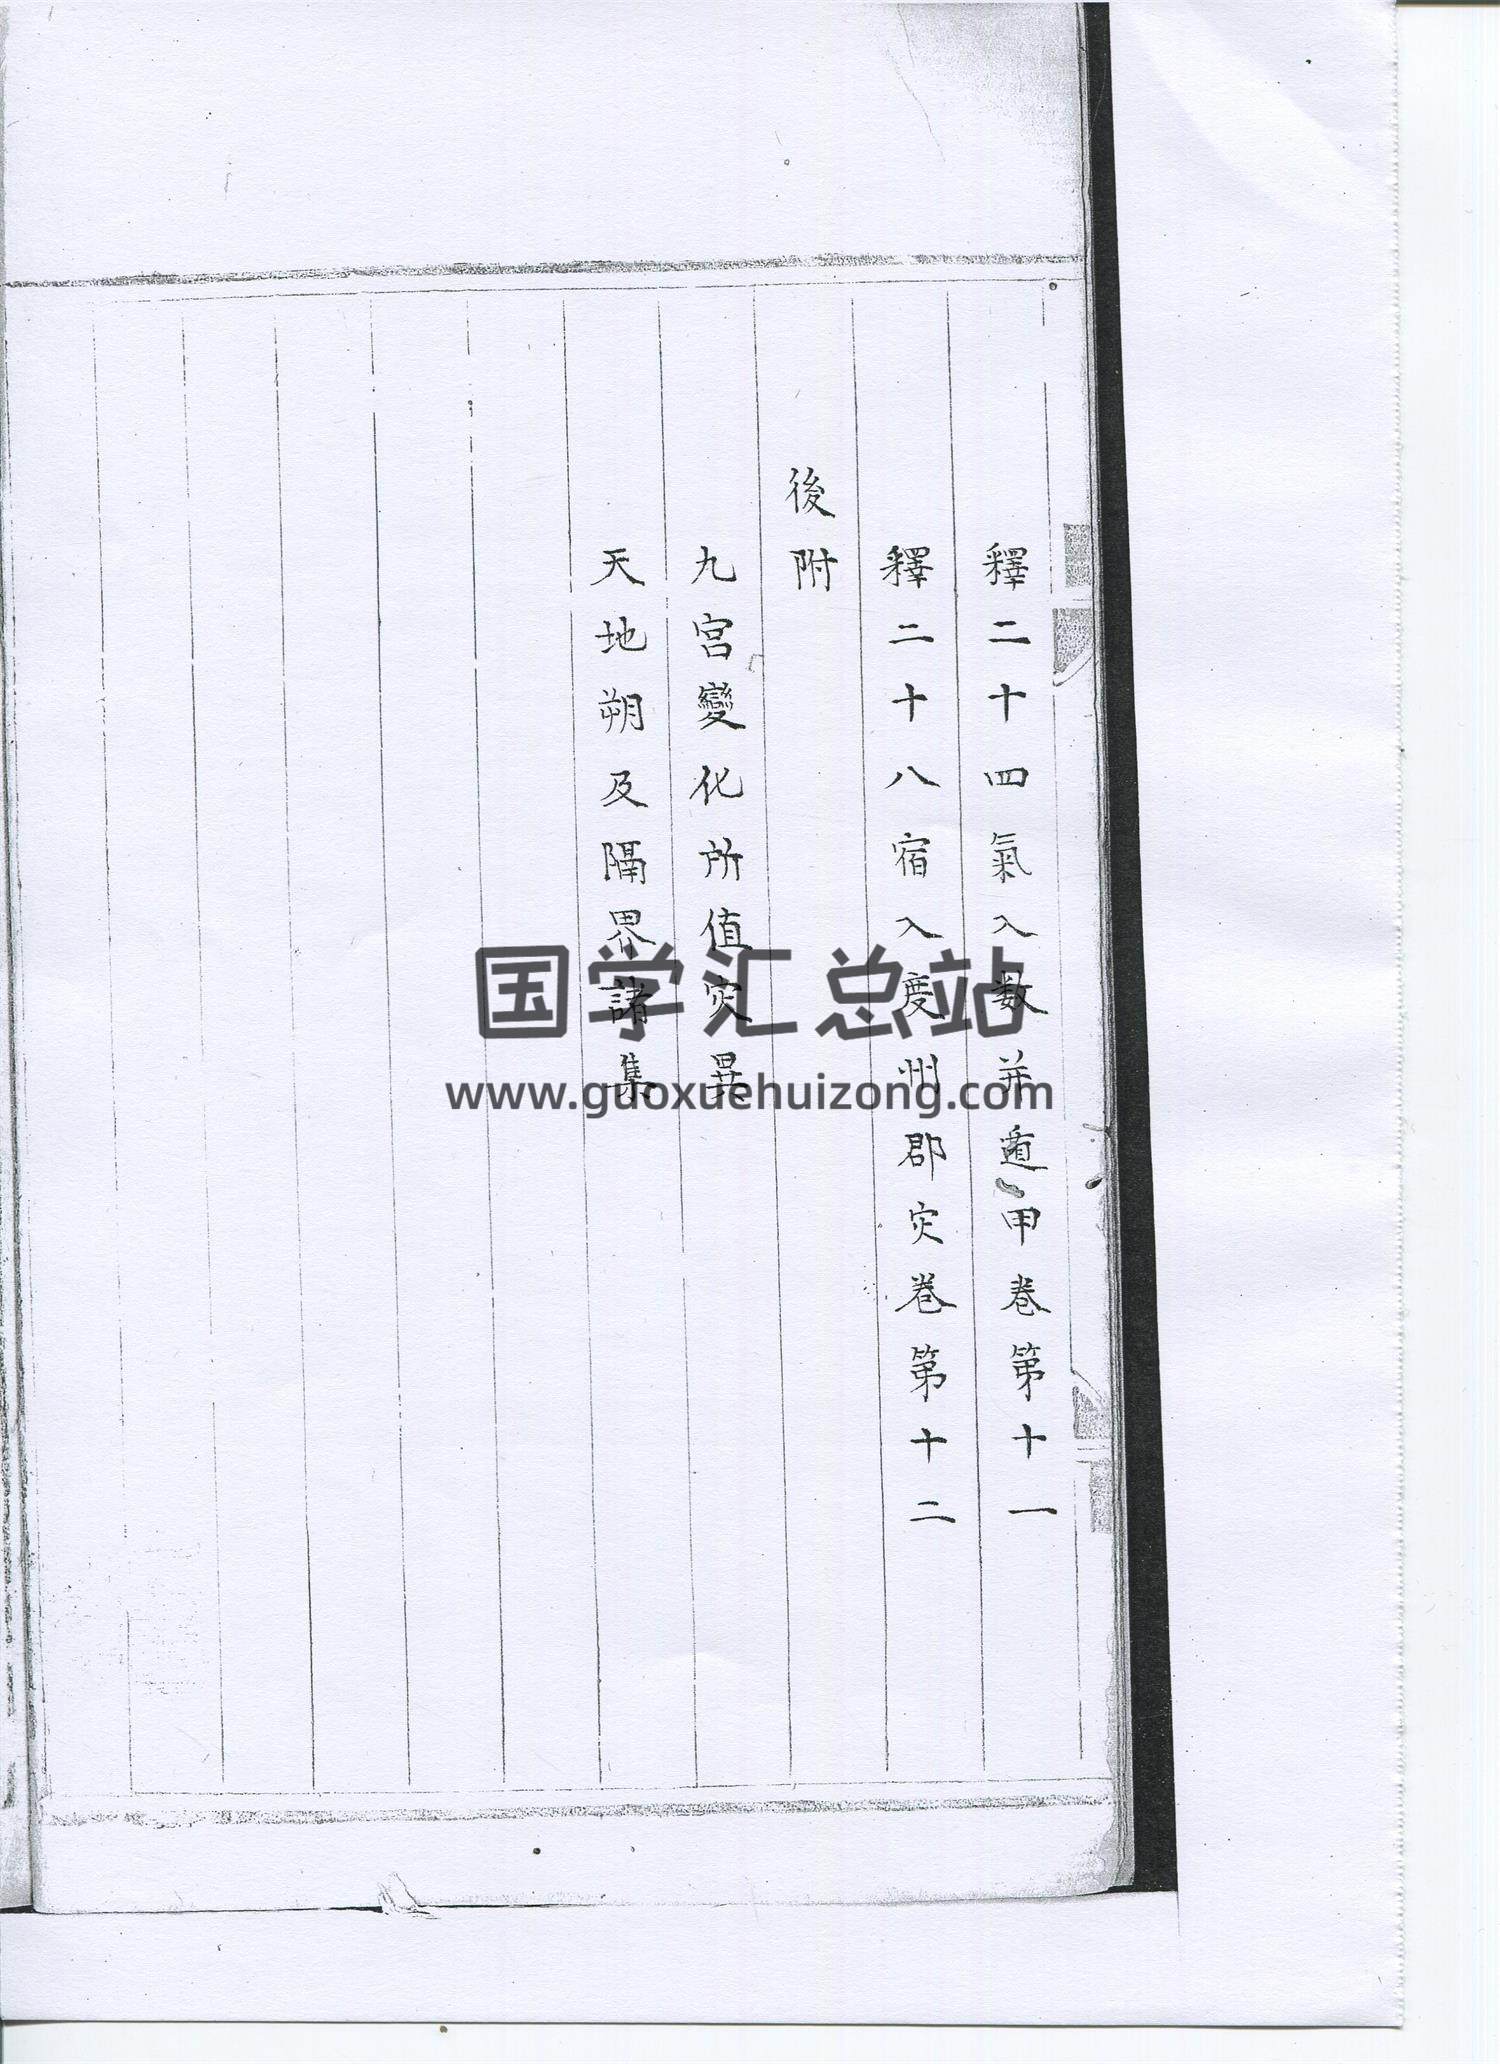 釋二十四氣入数并遁甲卷第十一
釋二十八宿入度州郡灾卷第十二
後附
九宮變化所值灾異
天地朔及隔界諸集
国学汇总站
www.guoxuehuizong.com